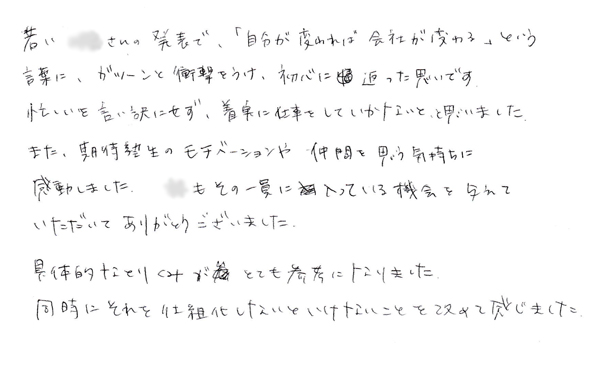 若い さんの発表で、「自分が変われば会社が変わる」という
言葉に、ガツーンと衝撃をうけ、初心に迫った思いです。
忙しいを言い訳にせず、着実に仕事をしていかないと、と思いました。
また、期待塾生のモチベーションや 仲間を思う気持ちに
感動しました。 もその一員に入っている機会を与えて
いただいてありがとうございました。
具体的なとりくみが とても参考になりました。
同時にそれを仕組化しないといけないことを改めて感じました。